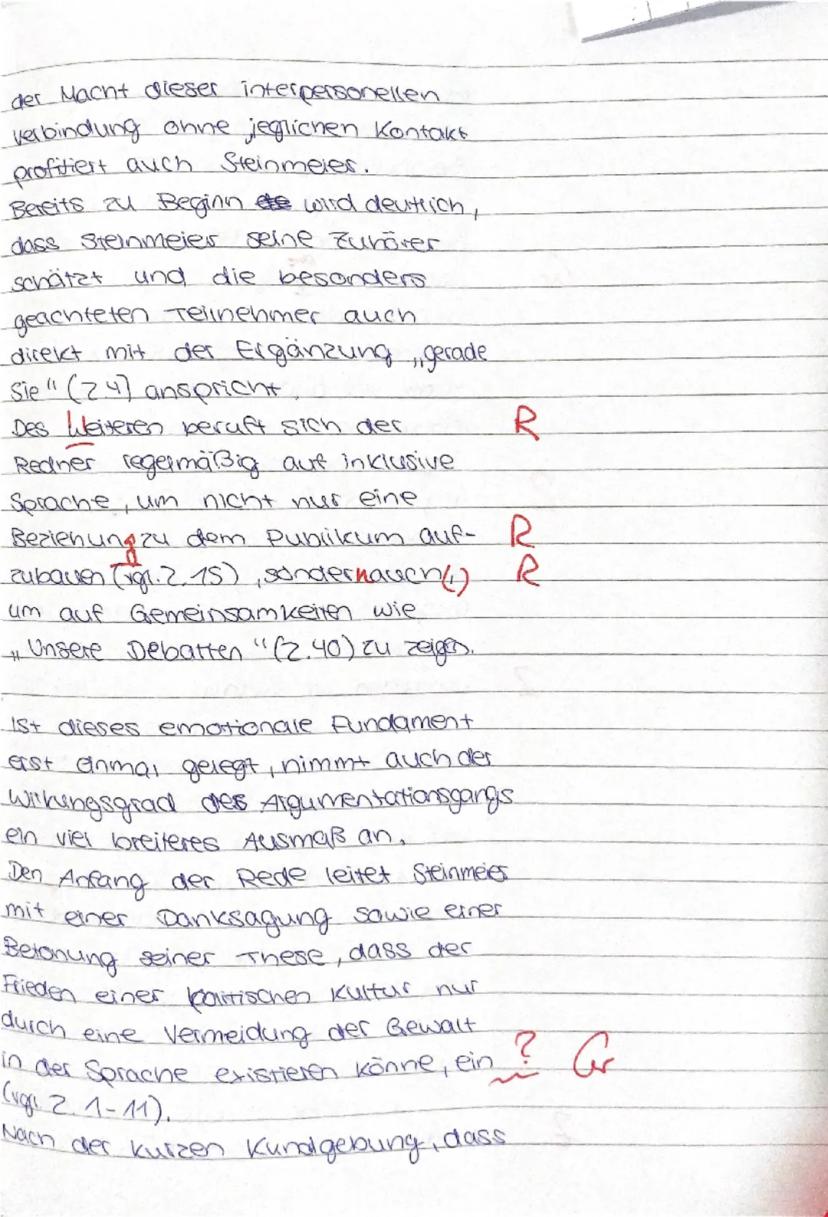 der Macht dieser interpersonellen
Verbindung ohne jeglichen Kontakt
profitiert auch Steinmeier.
Bereits zu Beginn wird deutlich,
dass Steinmeier seine Zuhörer
schätzt und die besonders
geachteten Teilnehmer auch
direkt mit der Ergänzung „gerade
Sie" (Z 4) anspricht.
Des Weiteren beruft sich der R
Redner regelmäßig auf inklusive
Sprache, um nicht nur eine
Beziehung zu dem Publikum auf- R
zubauen (vgl. Z. 15), sondern auch (,) R
um auf Gemeinsamkeiten wie
„Unsere Debatten" (Z. 40) zu zeigen.
Ist dieses emotionale Fundament
erst einmal gelegt, nimmt auch der
Wirkungsgrad des Argumentationsgangs
ein viel breiteres Ausmaß an.
Den Anfang der Rede leitet Steinmeier
mit einer Danksagung sowie einer
Betonung seiner These, dass der
Frieden einer politischen Kultur nur
durch eine Vermeidung der Gewalt
in der Sprache existieren könne, ein ? Gr
(vgl. Z. 1-11).
Nach der kurzen Kundgebung, dass